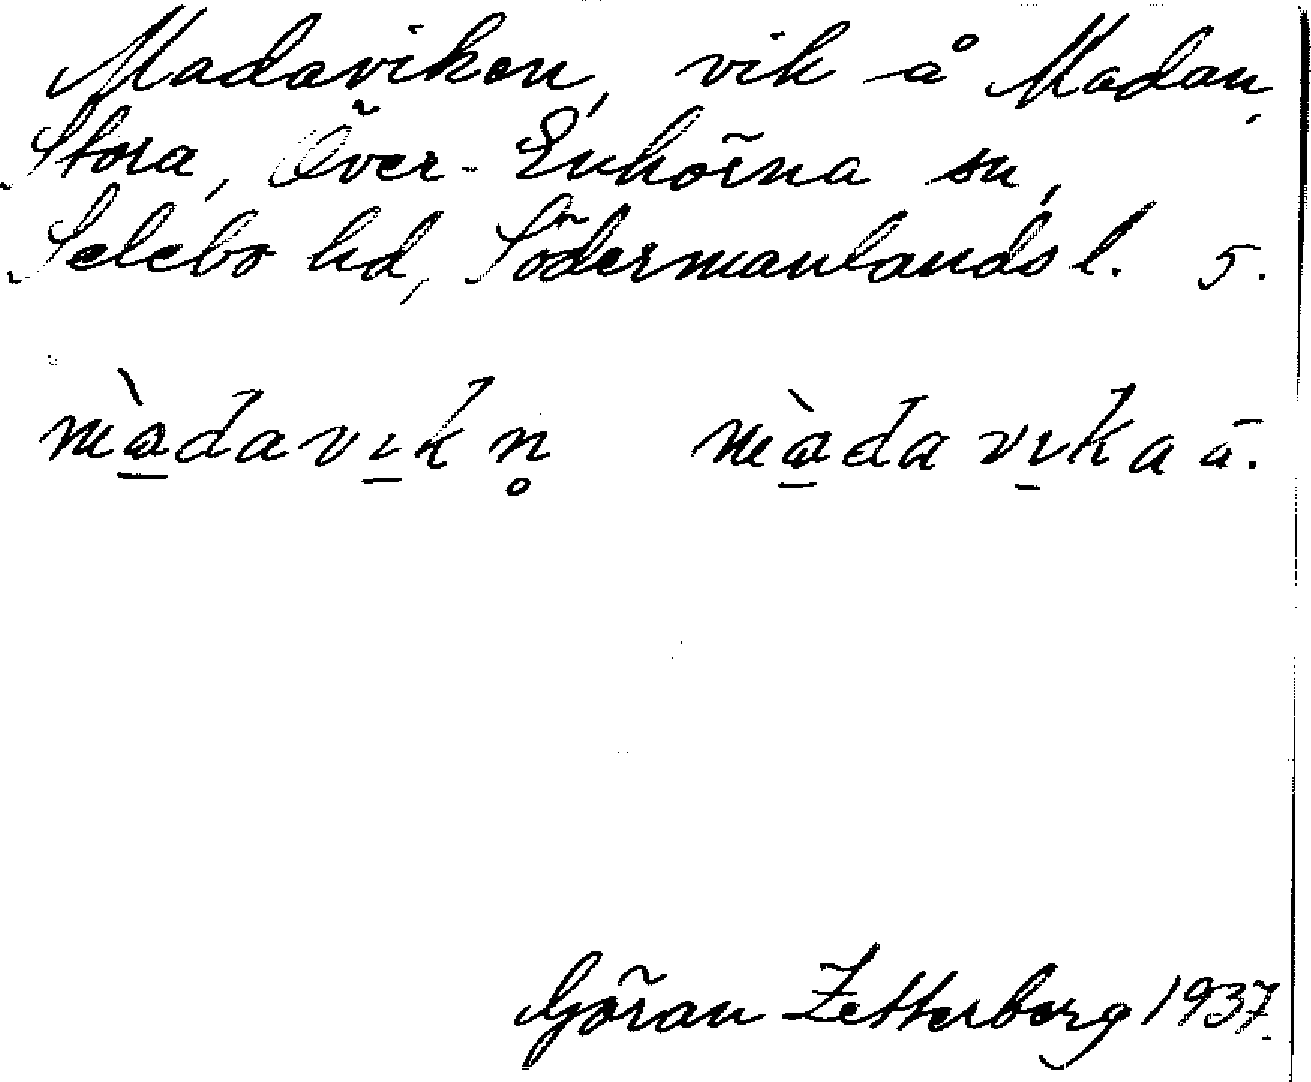 Madaviken, vik å Madan,
Stora, Över-Enhörna sn,
Selebo hd, Södermanlands l. 5.
màdavıkn̥ màdavıka ä.
Göran Zetterberg 1937.